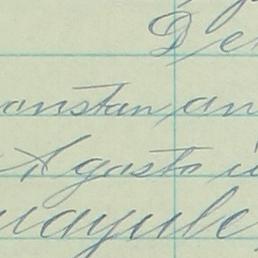 De
constan an
Agosto i
uayule